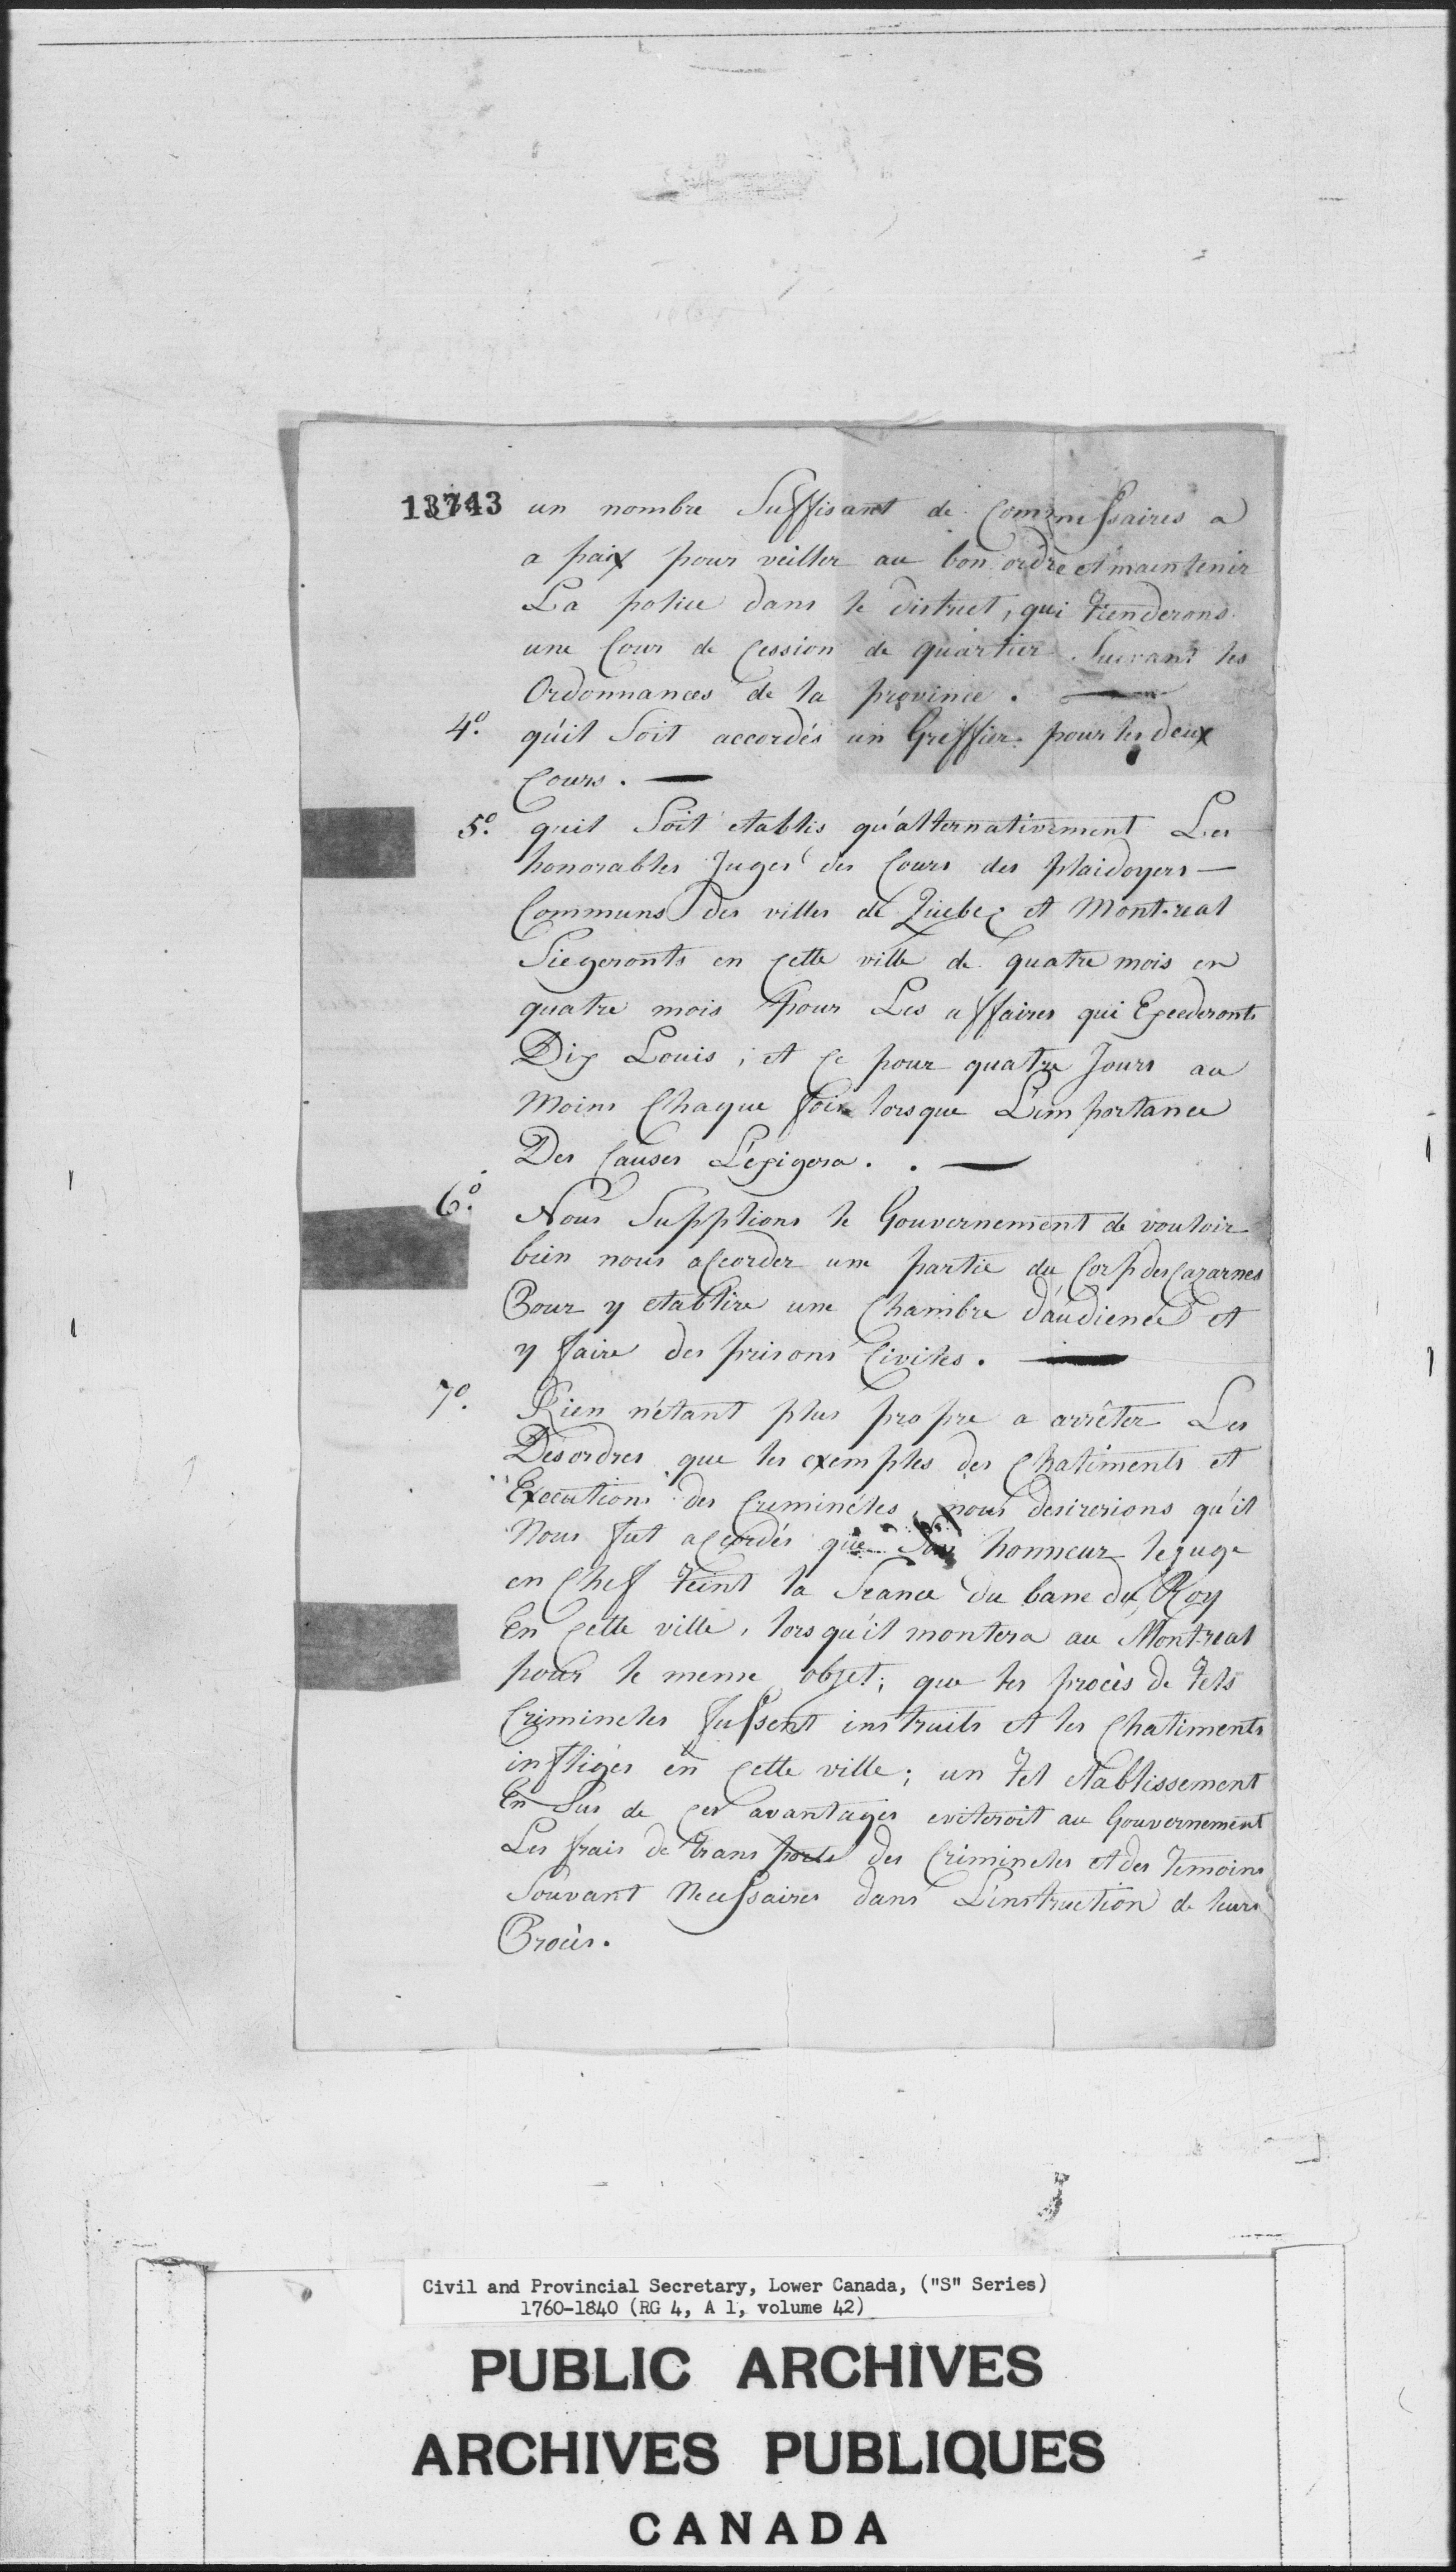 13743 un nombre Suffisant de Commissaires a
a paix pour veiller au bon ordre et maintenir
La police dans le district, qui Tienderons
une Cour de Cession de quartier Suivant les
Ordonnances de la province.
4º. qu'il Soit accordés un Greffier pour les deux
Cours.
5º. quil Soit etablis qu'alternativement Les
honorables Juges des Cours des plaidoyers
Communs des villes de Quebec et Montreal
Siegeronts en Cette ville de quatre mois en
quatre mois pour Les affaires qui Excederonts
Dix Louis, et Ce pour quatre Jours au
Moins Chaque fois lorsque L'importance
Des Causes L'éxigera.
6º. Nous Supplions le Gouvernement de vouloir
bien nous accorder une partie du Corp des Cazarnes
Pour y etablire une Chambre d'audience et
y faire des prisons Civiles.
7º. Rien n'étant plus propre a arrêter Les
Desordres que les exemples des Chatiments et
Executions des Criminéles, nous desirerions qu'il
Nous fut accordés que Son honneur le juge
en Chef teint la Seance du banc du Roy
En Cette ville, lors qu'il montera au Montreal
pour le meme objet; que les procès de Tels
Crimineles fussent instruits et les Chatiments
infligés en Cette ville; un Tel etablissement
En Sus de ces avantages eviteroit au Gouvernement
Les frais de transports des Crimineles et des Temoins
Souvant Necessaires dans L'instruction de leurs
Procès.
Civil and Provincial Secretary, Lower Canada, ("S" Series)
1760-1840 (RG 4, A 1, volume 42)
PUBLIC ARCHIVES
ARCHIVES PUBLIQUES
CANADA